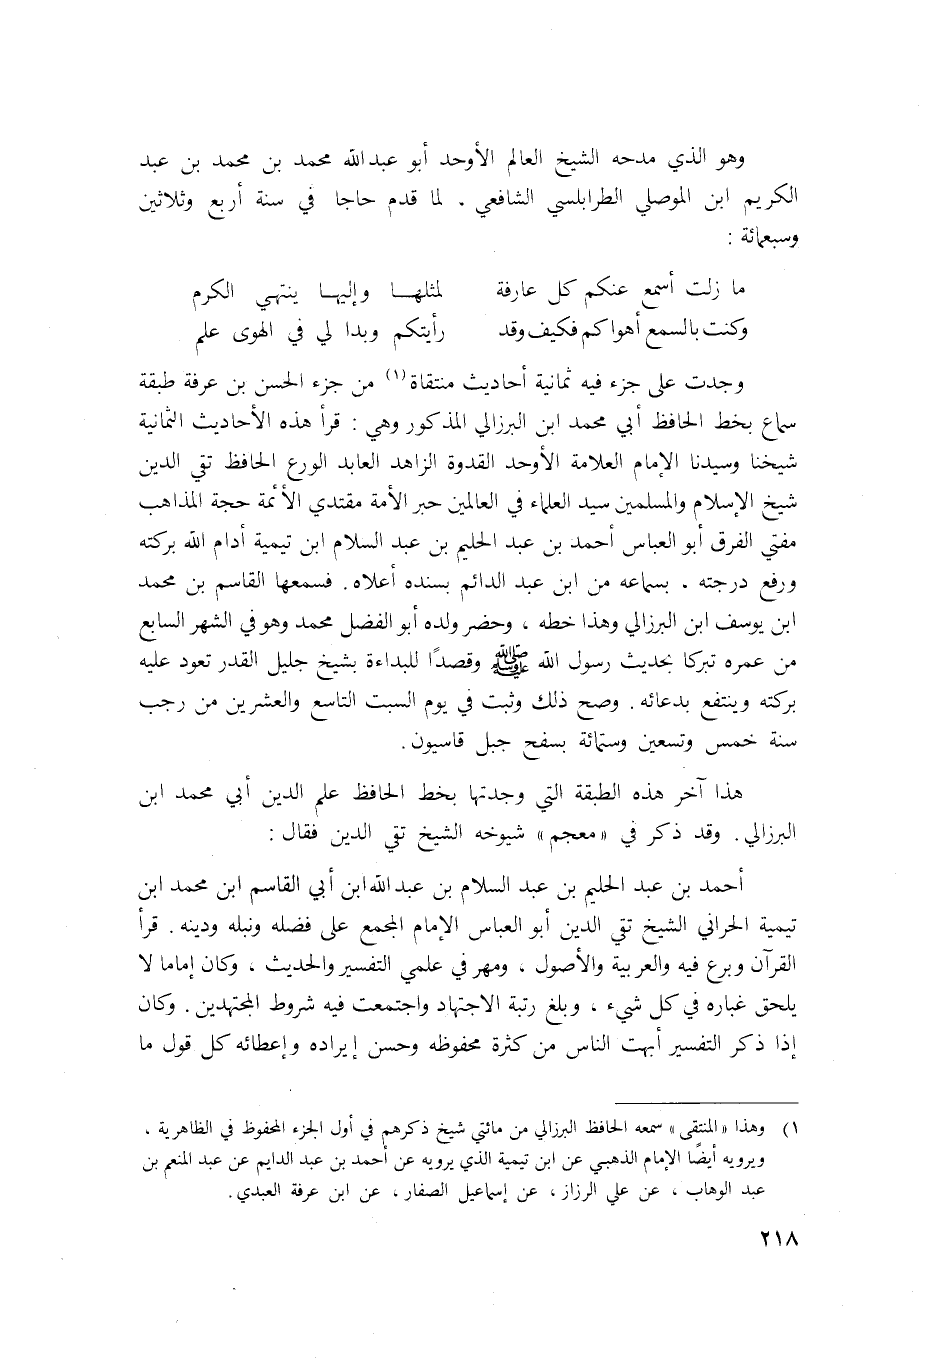 وهو الذي مدحه الشيخ العالم الأوحد أبو عبدالله محمد بن محمد بن عبد
الكريم ابن الموصلي الطرابلسي الشافعي . لما قدم حاجا في سنة أربع وثلاثين
وسبعمائة :
ما زلت أسمع عنكم كل عارفة لمثلهـا وإليهـا ينتهي الكرم
وكنت بالسمع أهواكم فكيف وقد رأيتكم وبدا لي في الهوى علم
وجدت على جزء فيه ثمانية أحاديث منتقاة(١) من جزء الحسن بن عرفة طبقة
سماع بخط الحافظ أبي محمد ابن البرزالي المذكور وهي : قرأ هذه الأحاديث الثمانية
شيخنا وسيدنا الإمام العلامة الأوحد القدوة الزاهد العابد الورع الحافظ تقي الدين
شيخ الإسلام والمسلمين سيد العلماء في العالمين حبر الأمة مقتدي الأئمة حجة المذاهب
مفتي الفرق أبو العباس أحمد بن عبد الحليم بن عبد السلام ابن تيمية أدام الله بركته
ورفع درجته . بسماعه من ابن عبد الدائم بسنده أعلاه . فسمعها القاسم بن محمد
ابن يوسف ابن البرزالي وهذا خطه ، وحضر ولده أبو الفضل محمد وهو في الشهر السابع
من عمره تبركا بحديث رسول الله ﷺ وقصدًا للبداءة بشيخ جليل القدر تعود عليه
بركته وينتفع بدعائه . وصح ذلك وثبت في يوم السبت التاسع والعشرين من رجب
سنة خمس وتسعين وستمائة بسفح جبل قاسيون .
هذا آخر هذه الطبقة التي وجدتها بخط الحافظ علم الدين أبي محمد ابن
البرزالي . وقد ذكر في «معجم» شيوخه الشيخ تقي الدين فقال :
أحمد بن عبد الحليم بن عبد السلام بن عبد الله ابن أبي القاسم ابن محمد ابن
تيمية الحراني الشيخ تقي الدين أبو العباس الإمام المجمع على فضله ونبله ودينه . قرأ
القرآن وبرع فيه والعربية والأصول ، ومهر في علمي التفسير والحديث ، وكان إماما لا
يلحق غباره في كل شيء ، وبلغ رتبة الاجتهاد واجتمعت فيه شروط المجتهدين . وكان
إذا ذكر التفسير أبهت الناس من كثرة محفوظه وحسن إيراده وإعطائه كل قول ما
١) وهذا «المنتقى» سمعه الحافظ البرزالي من مائتي شيخ ذكرهم في أول الجزء المحفوظ في الظاهرية ،
ويرويه أيضًا الإمام الذهبي عن ابن تيمية الذي يرويه عن أحمد بن عبد الدايم عن عبد المنعم بن
عبد الوهاب ، عن علي الرزاز ، عن إسماعيل الصفار ، عن ابن عرفة العبدي .
٢١٨